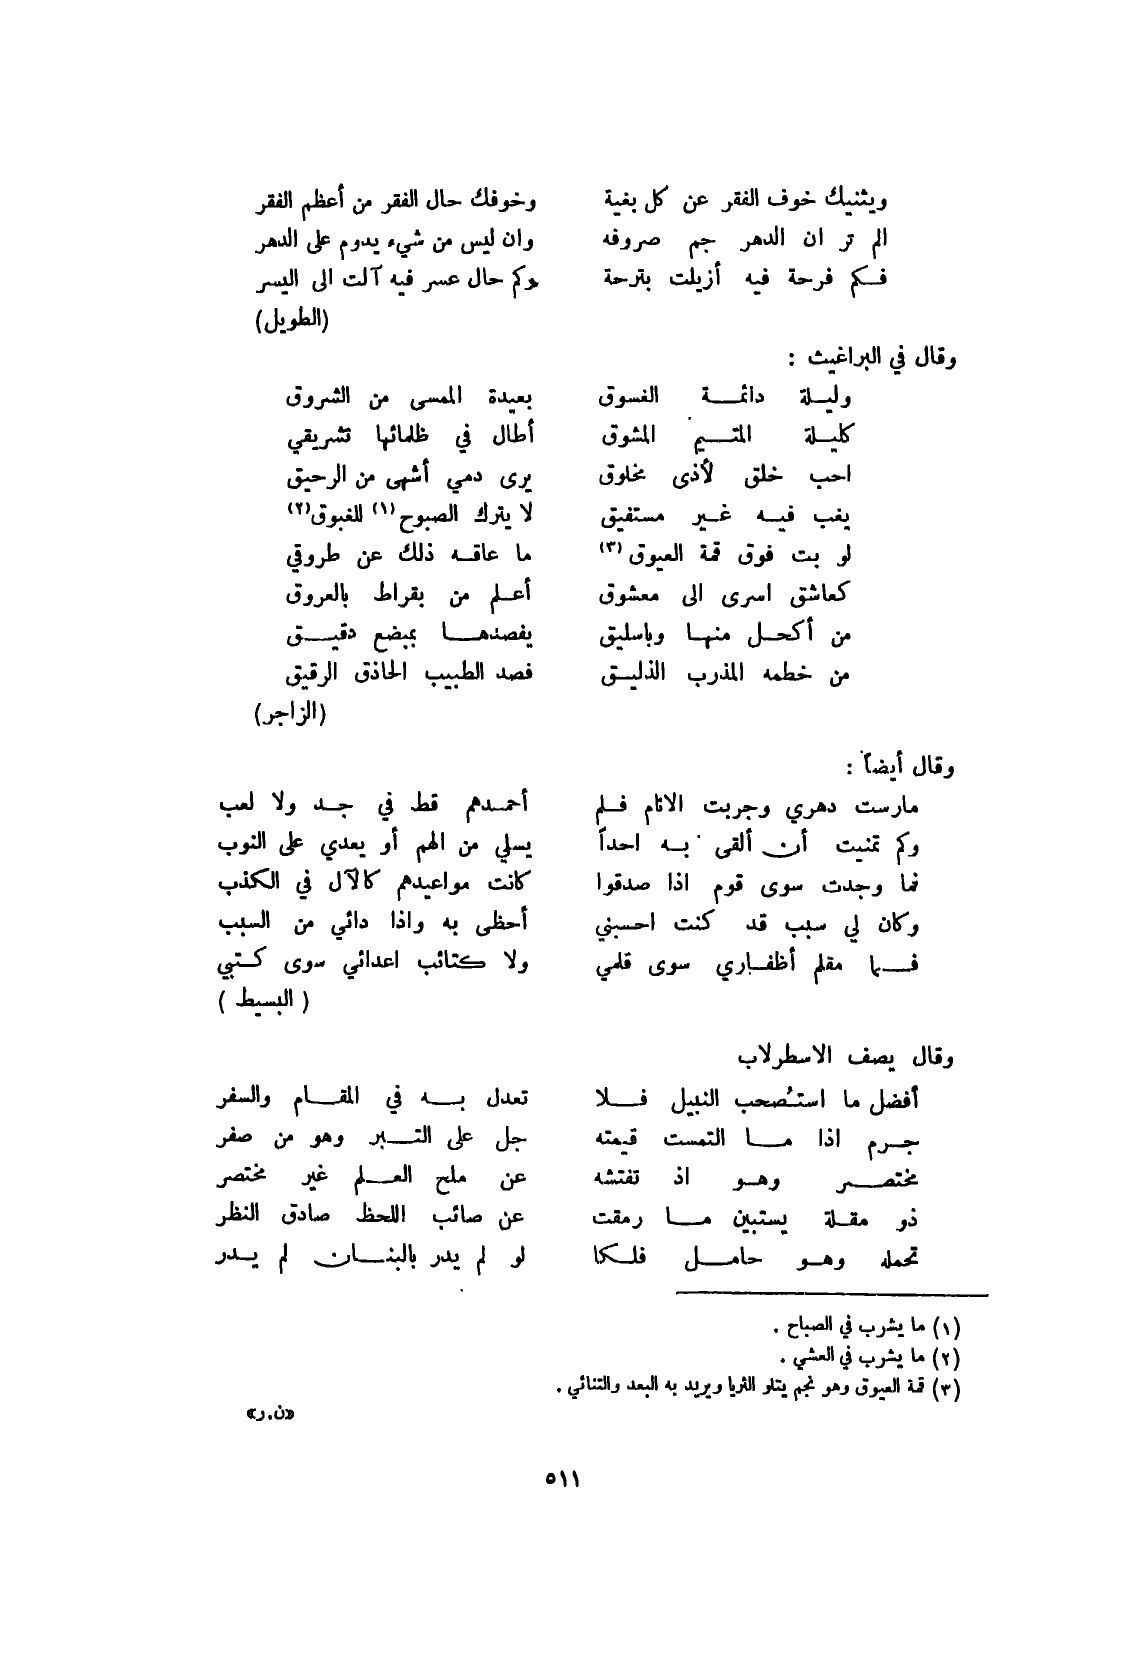 ويثنيك خوف الفقر عن كل بغية وخوفك حال الفقر من أعظم الفقر
الم تر ان الدهر جم صروفه وان ليس من شيء يدوم على الدهر
فكم فرحة فيه أزيلت بترحة وكم حال عسر فيه آلت الى اليسر
(الطويل)
وقال في البراغيث :
وليلة دائمة الغسوق بعيدة الممسى من الشروق
كليلة المتيم المشوق أطال في ظلمائها تشريقي
احب خلق لأذى مخلوق يرى دمي أشهى من الرحيق
يغب فيه غير مستفيق لا يترك الصبوح (١) للغبوق (٢)
لو بت فوق قمة العيوق (٣) ما عاقه ذلك عن طروقي
كعاشق اسرى الى معشوق أعلم من بقراط بالعروق
من أكحل منها وباسليق يفصدها بمبضع دقيق
من خطمه المذرب الذليق فصد الطبيب الحاذق الرقيق
(الزاجر)
وقال أيضاً :
مارست دهري وجربت الانام فلم أحمدهم قط في جد ولا لعب
وكم تمنيت أن ألقى به احداً يسلي من الهم أو يعدي على النوب
فما وجدت سوى قوم اذا صدقوا كانت مواعيدهم كالآل في الكذب
وكان لي سبب قد كنت احسبني أحظى به واذا دائي من السبب
فما مقلم أظفاري سوى قلمي ولا كتائب اعدائي سوى كتبي
( البسيط )
وقال يصف الاسطرلاب
أفضل ما استُصحب النبيل فلا تعدل به في المقام والسفر
جرم اذا ما التمست قيمته جل على التبر وهو من صفر
مختصر وهو اذ تفتشه عن ملح العلم غير مختصر
ذو مقلة يستبين ما رمقت عن صائب اللحظ صادق النظر
تحمله وهو حامل فلكا لو لم يدر بالبنان لم يدر
(١) ما يشرب في الصباح .
(٢) ما يشرب في العشي .
(٣) قمة العيوق وهو نجم يتلو الثريا ويريد به البعد والتنائي .
«ن.ر»
٥١١